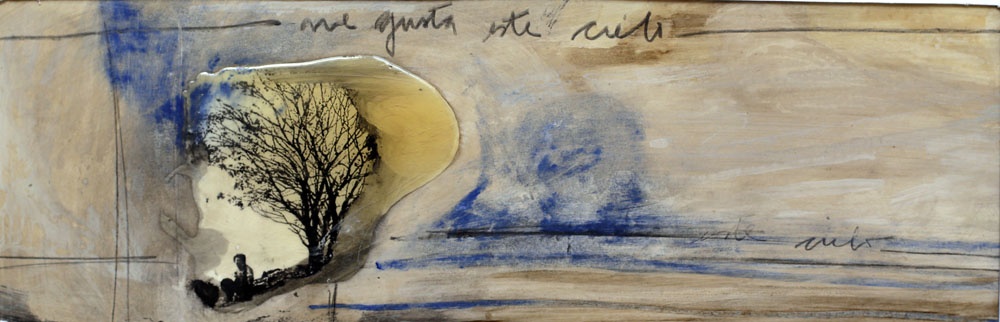 me gusta este cielo
este cielo